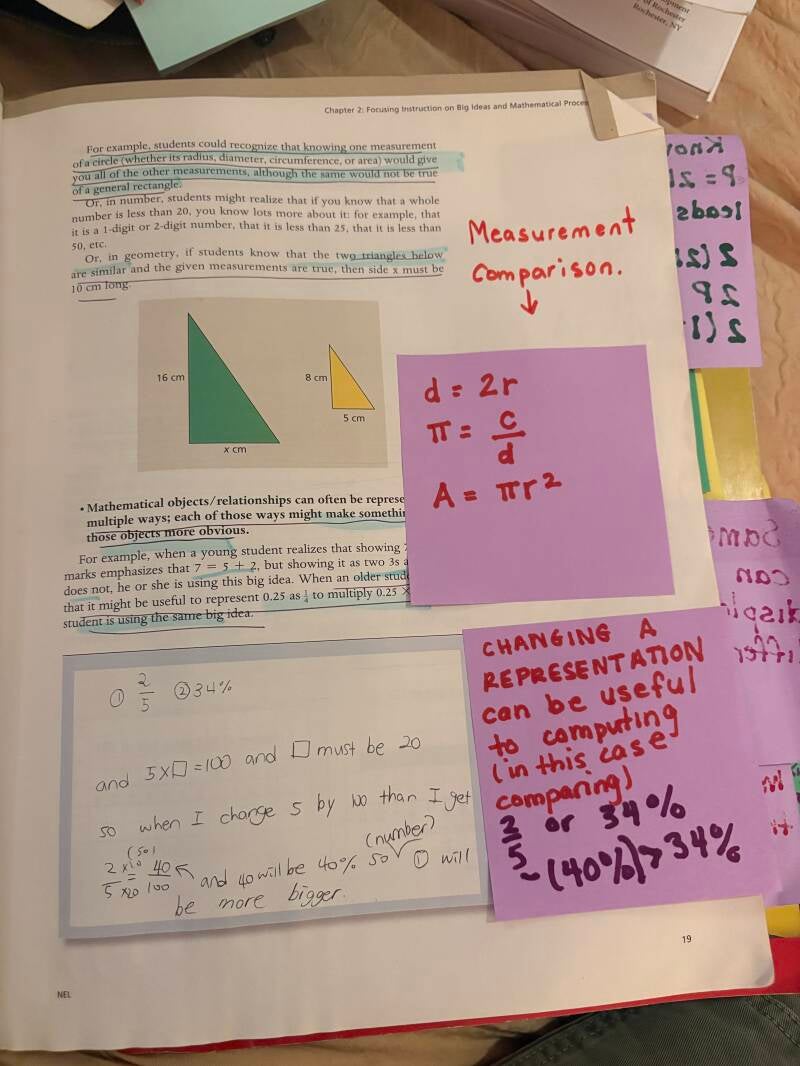 Rochester
Rochester, NY
Chapter 2: Focusing Instruction on Big Ideas and Mathematical
For example, students could recognize that knowing one measurement
of a circle (whether its radius, diameter, circumference, or area) would give
you all of the other measurements, although the same would not be true
of a general rectangle.
Or, in number, students might realize that if you know that a whole
number is less than 20, you know lots more about it: for example, that
it is a 1-digit or 2-digit number, that it is less than 25, that it is less than
50, etc.
Or, in geometry, if students know that the two triangles below
are similar and the given measurements are true, then side x must be
10 cm long.
Measurement
Comparison.
↓
16 cm
x cm
8 cm
5 cm
d = 2r
π = c/d
A = πr²
• Mathematical objects/relationships can often be
multiple ways; each of those ways might make
those objects more obvious.
For example, when a young student realizes that showing
marks emphasizes that 7 = 5 + 2, but showing it as two 3s
does not, he or she is using this big idea. When an older
that it might be useful to represent 0.25 as 1/4 to multiply 0.25 ×
student is using the same big idea.
① 2/5 ② 34%
and 5 × □ = 100 and □ must be 20
so when I change 5 by 100 than I get
(so) (number)
2/5 = 40/100 and 40 will be 40% so ① will
be more bigger.
CHANGING A
REPRESENTATION
can be useful
to computing
(in this case
comparing)
2/5 or 34%
~(40%) > 34%
19
NEL